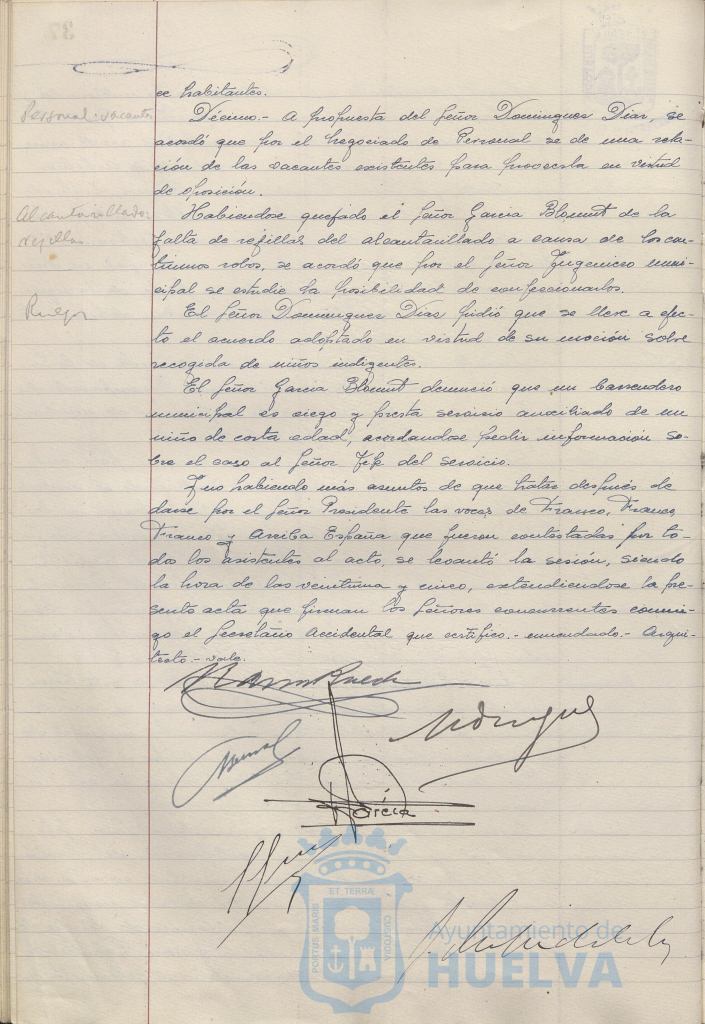 ce habitantes.
Personal-vacantes
Décimo.- A propuesta del Señor Dominguez Dias, se
acordó que por el Negociado de Personal se de una rela-
ción de las vacantes existentes para proveerla en virtud
de oposición.
Alcantarillado
rejillas
Habiendose quejado el Señor Garcia Blomut de la
falta de rejillas del alcantarillado a causa de los con-
tinuos robos, se acordó que por el Señor Ingeniero muni-
cipal se estudie la posibilidad de confeccionarlos.
Ruegos
El Señor Dominguez Dias pidió que se lleve a efec-
to el acuerdo adoptado en virtud de su moción sobre
recogida de niños indigentes.
El Señor Garcia Blomut denunció que un barrendero
municipal es ciego y presta servicio auxiliado de un
niño de corta edad, acordandose pedir informacion so-
bre el caso al Señor Jefe del servicio.
Y no habiendo más asuntos de que tratar después de
darse por el Señor Presidente las voces de Franco, Franco
Franco y Arriba España que fueron contestadas por to-
dos los asistentes al acto, se levantó la sesión, siendo
la hora de las veintiuna y cinco, extendiendose la pre-
sente acta que firman los Señores concurrentes conmi-
go el Secretario Accidental que certifico.- enmendado.- Arqui-
tecto.- vale.
García
ET TERRÆ
PORTUS MARIS
CUSTODIA
Ayuntamiento de
HUELVA